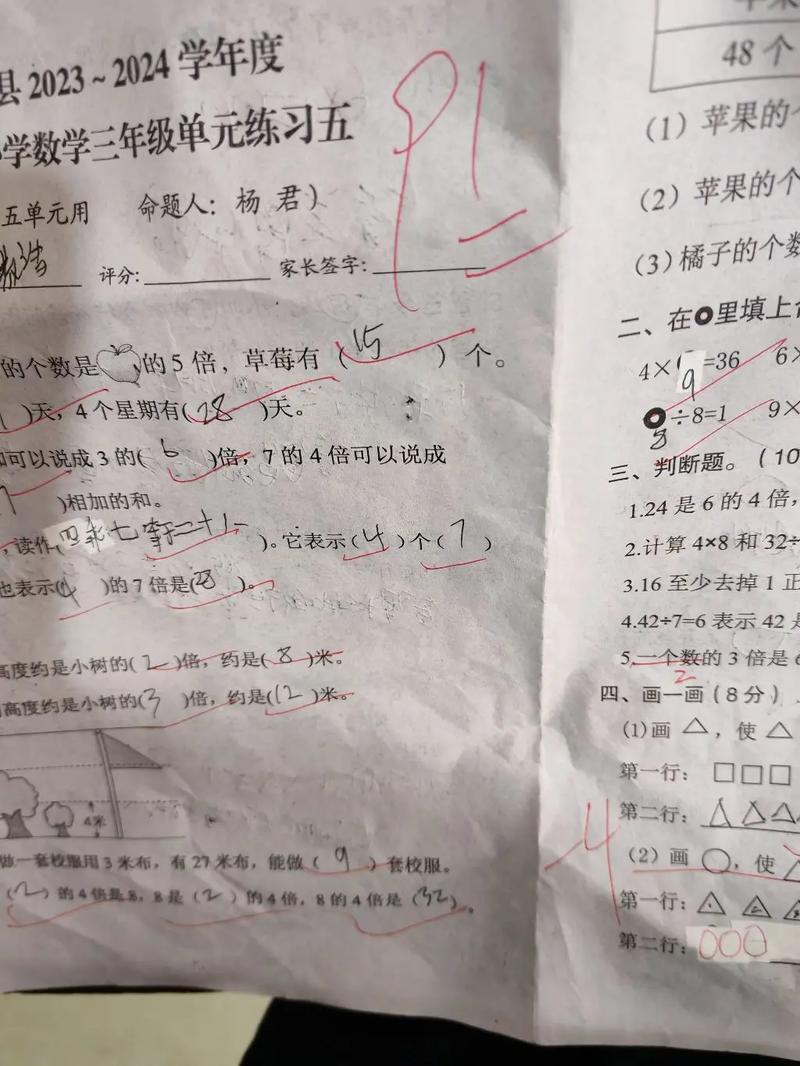 县2023~2024学年度
学数学三年级单元练习五
五单元用 命题人：杨 君）
评分： 家长签字：
91
的个数是的5倍，草莓有（15）个。
)天，4个星期有(28)天。
可以说成3的(6)倍，7的4倍可以说成
7)相加的和。
，读作(四乘七等于二十八)。它表示(4)个(7)
也表示(4)的7倍是(28)。
高度约是小树的(2)倍，约是(8)米。
高度约是小树的(3)倍，约是(12)米。
4米
做一套校服用3米布，有27米布，能做（9）套校服。
（2）的4倍是8，8是（2）的4倍，8的4倍是（32）。
48个
（1）苹果的
（2）苹果的个
（3）橘子的个数
二、在里填上合
4×(9=36 6×
8÷8=1 9×
三、判断题。（10
1.24是6的4倍，
2.计算4×8和32÷
3.16至少去掉1正
4.42÷7=6表示42是
5.一个数的3倍是6
2
四、画一画（8分）
(1)画△，使△
第一行：□□□
第二行：△△△
-4
（2）画○，使△
第一行：△△△
第二行：○○○